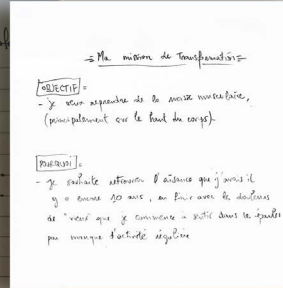 = Ma mission de Transformation =
OBJECTIF :
- je veux reprendre de la masse musculaire,
(principalement sur le haut du corps)
POURQUOI :
- je souhaite retrouver l'aisance que j'avais il
y a encore 10 ans, en finir avec les douleurs
de "vieux" que je commence à sentir dans les épaules
par manque d'activité régulière